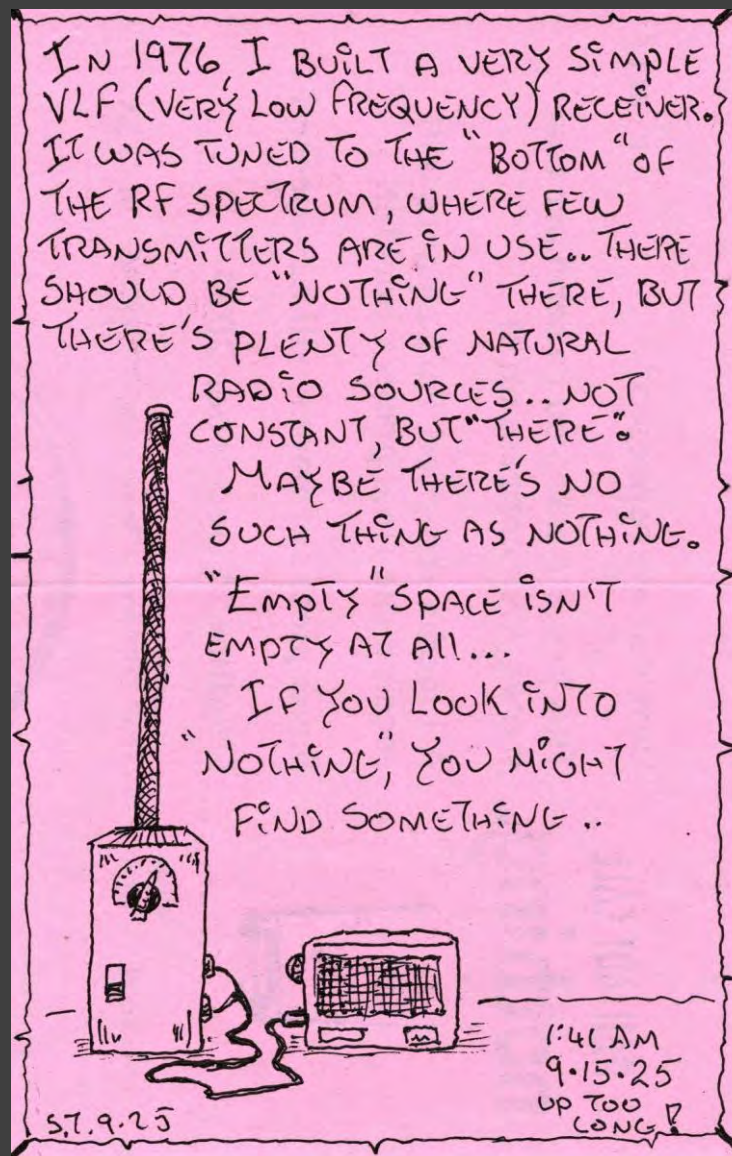 IN 1976, I BUILT A VERY SIMPLE
VLF (VERY LOW FREQUENCY) RECEIVER.
IT WAS TUNED TO THE "BOTTOM" OF
THE RF SPECTRUM, WHERE FEW
TRANSMITTERS ARE IN USE.. THERE
SHOULD BE "NOTHING" THERE, BUT
THERE'S PLENTY OF NATURAL
RADIO SOURCES.. NOT
CONSTANT, BUT "THERE".
MAYBE THERE'S NO
SUCH THING AS NOTHING.
"EMPTY" SPACE ISN'T
EMPTY AT All...
IF YOU LOOK INTO
"NOTHING", YOU MIGHT
FIND SOMETHING..
1:41 AM
9.15.25
UP TOO
LONG!
S.T. 9.25